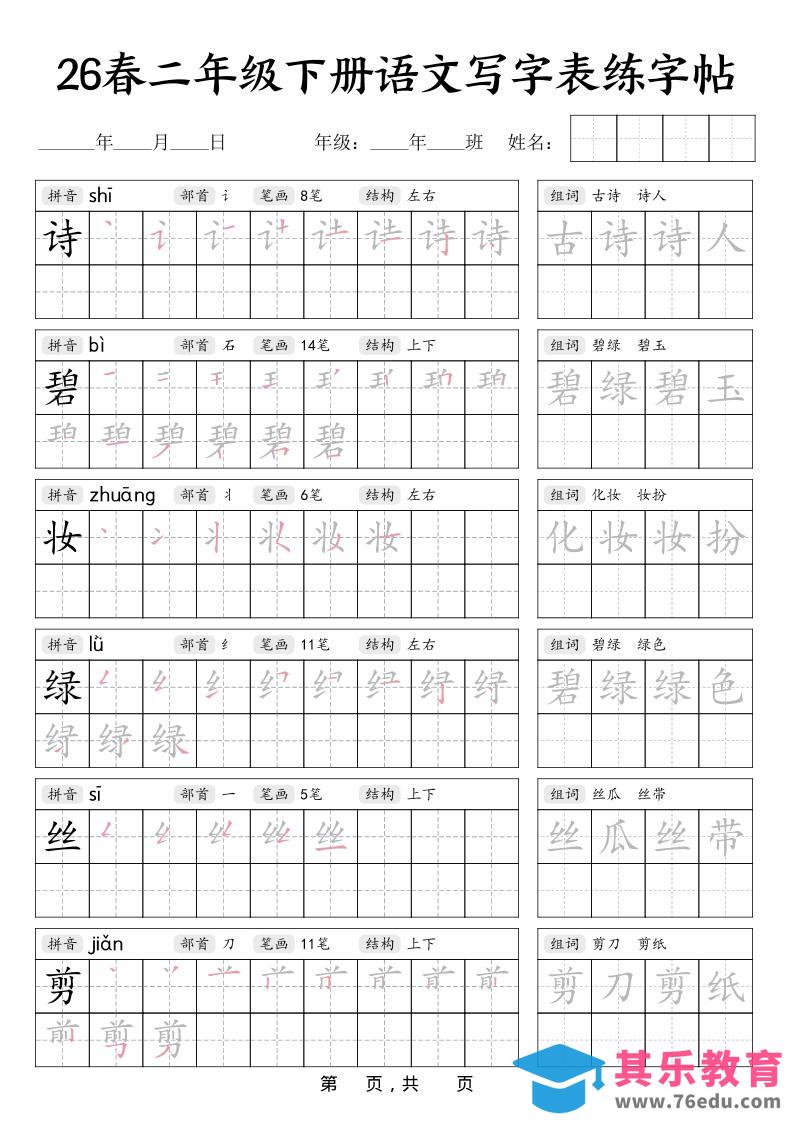 26春二年级下册语文写字表练字帖
______年____月____日 年级：____年____班 姓名：
拼音 shī 部首 讠 笔画 8笔 结构 左右 组词 古诗 诗人
诗 古诗诗人
拼音 bì 部首 石 笔画 14笔 结构 上下 组词 碧绿 碧玉
碧 碧绿碧玉
拼音 zhuāng 部首 丬 笔画 6笔 结构 左右 组词 化妆 妆扮
妆 化妆妆扮
拼音 lǜ 部首 纟 笔画 11笔 结构 左右 组词 碧绿 绿色
绿 碧绿绿色
拼音 sī 部首 一 笔画 5笔 结构 上下 组词 丝瓜 丝带
丝 丝瓜丝带
拼音 jiǎn 部首 刀 笔画 11笔 结构 上下 组词 剪刀 剪纸
剪 剪刀剪纸
第 页，共 页
其乐教育
www.76edu.com